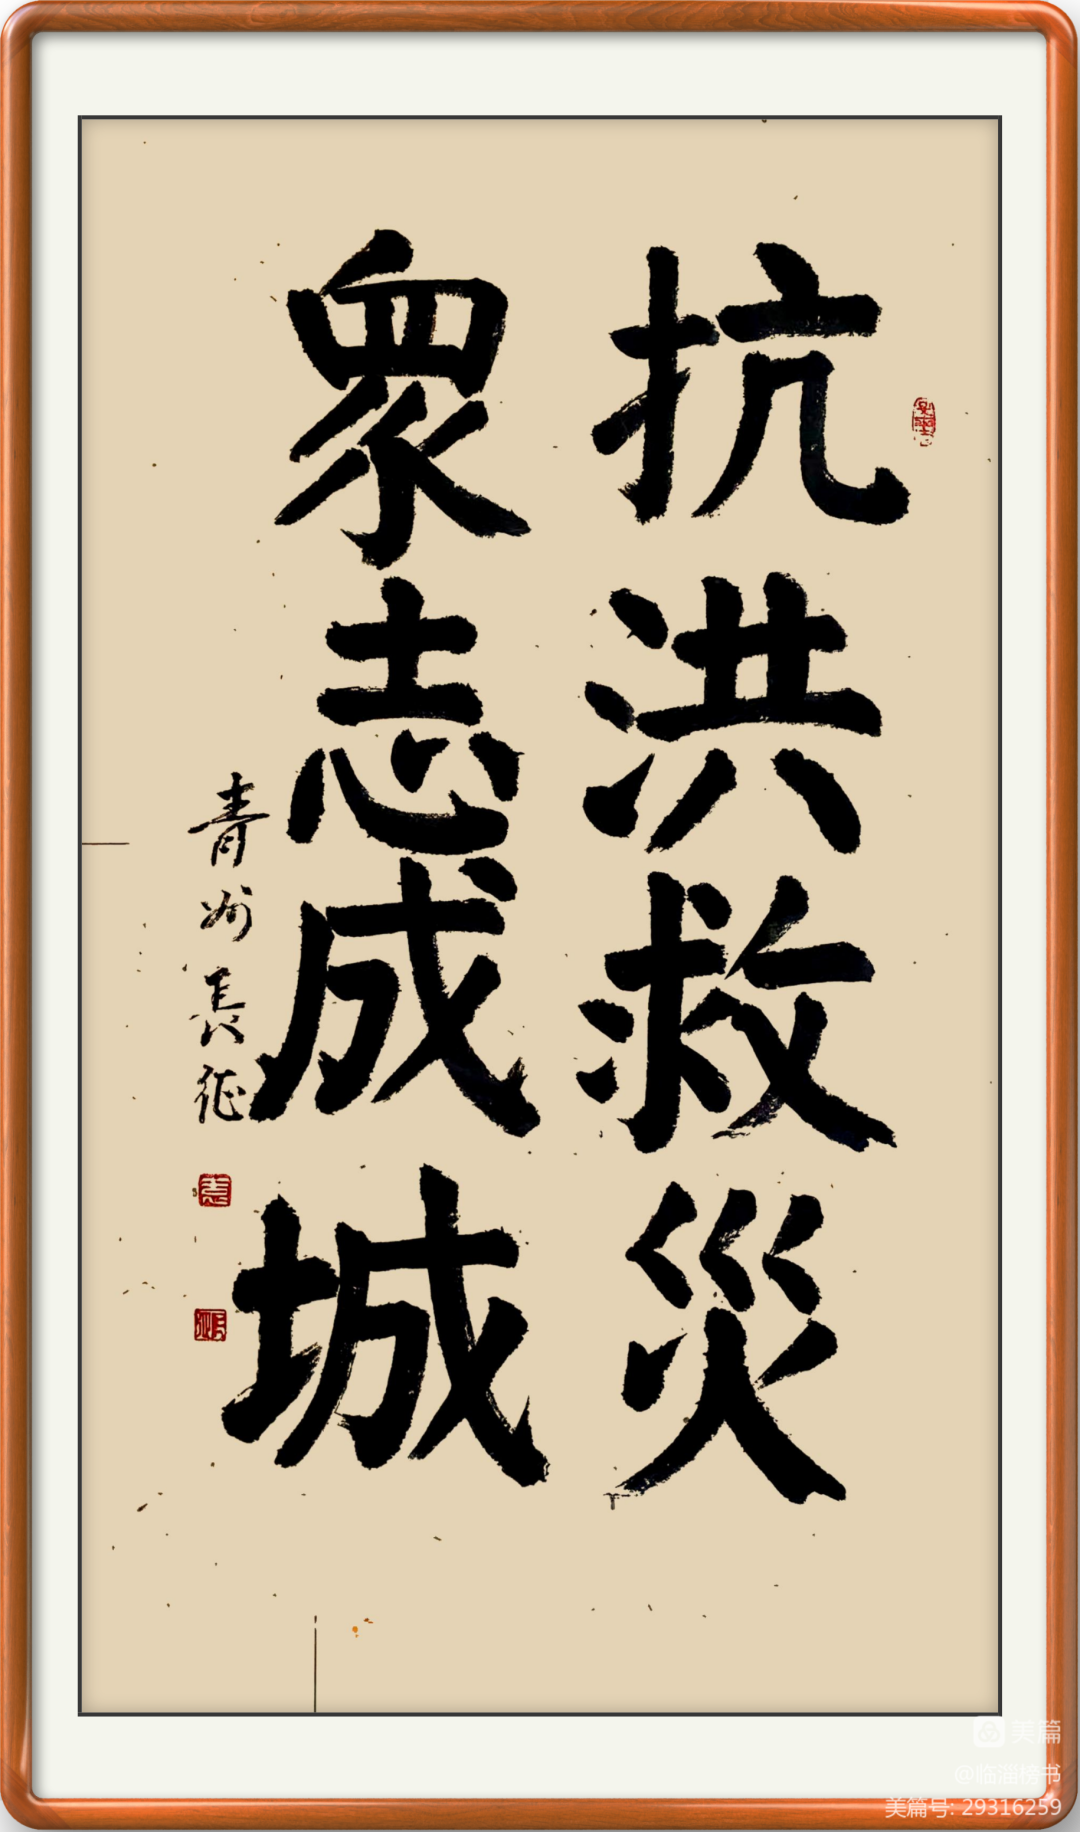 抗洪救災
眾志成城
青州長征
美篇
@临淄榜书
美篇号: 29316259